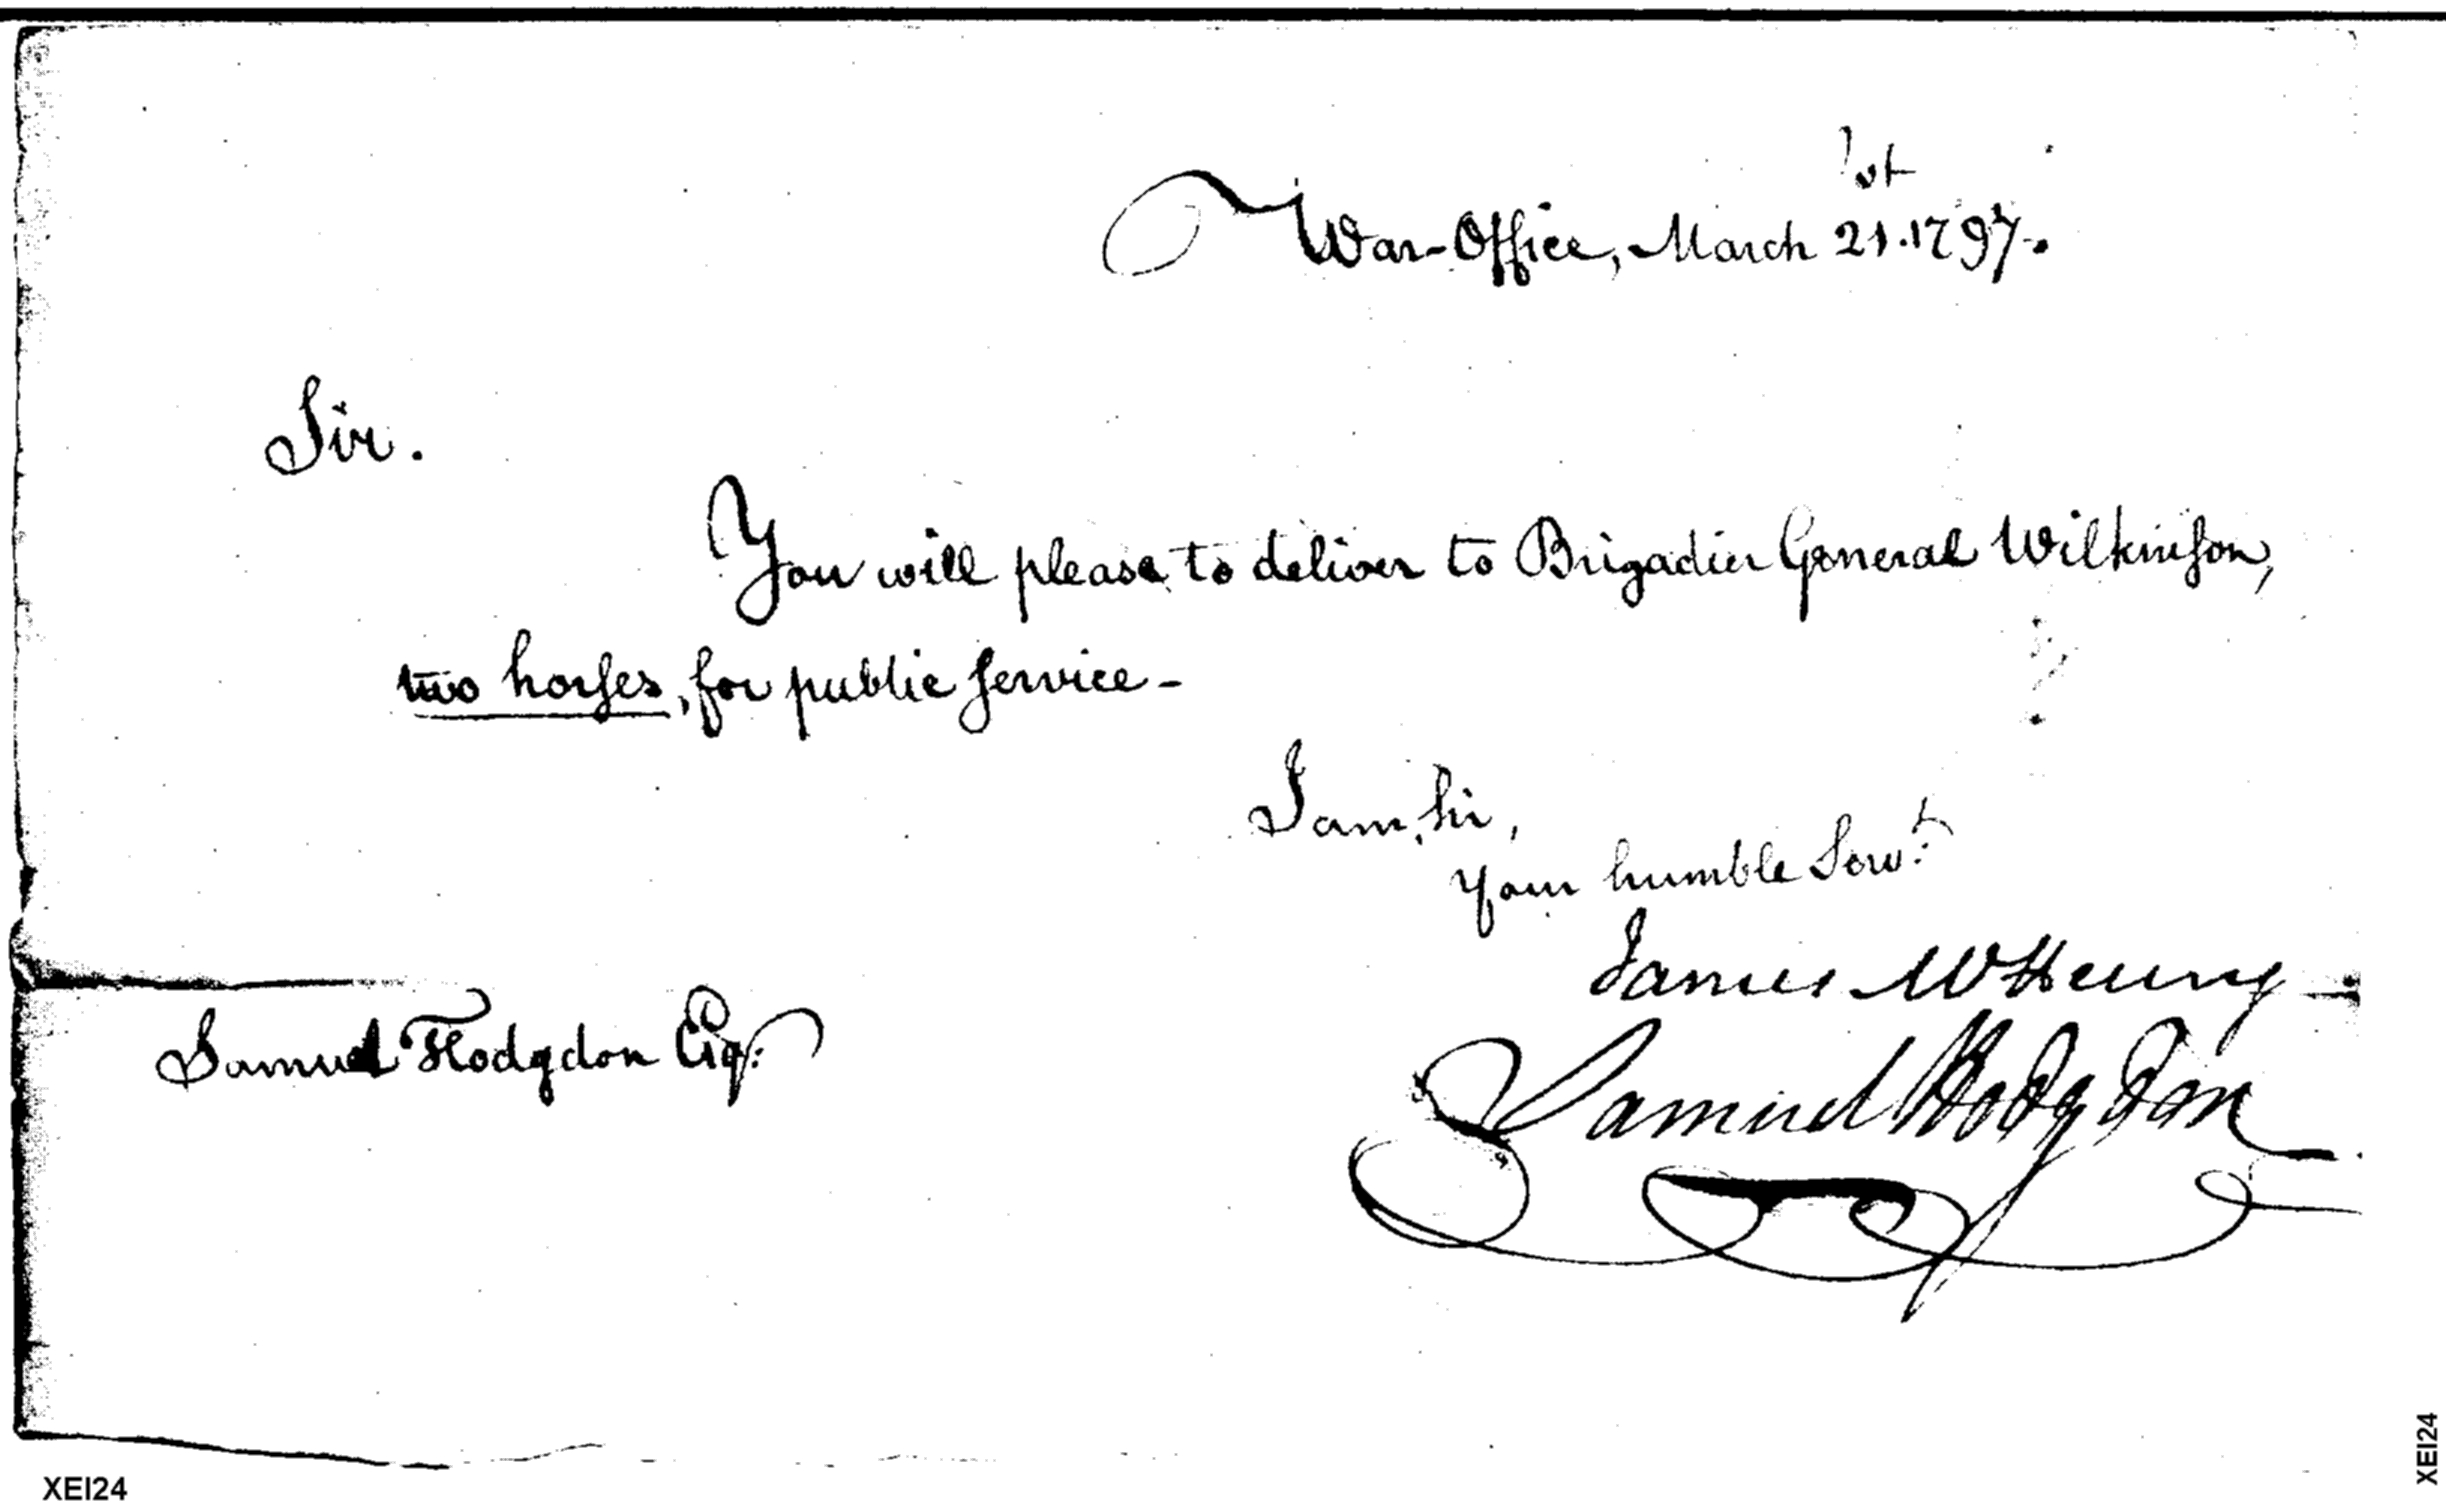 War-Office, March 21st. 1797.
Sir.
You will please to deliver to Brigadier General Wilkinson,
two horses, for public service -
I am, Sir,
Your humble Servt.
James McHenry
Samuel Hodgdon Esq.
Samuel Hodgdon
XEI24
XEI24